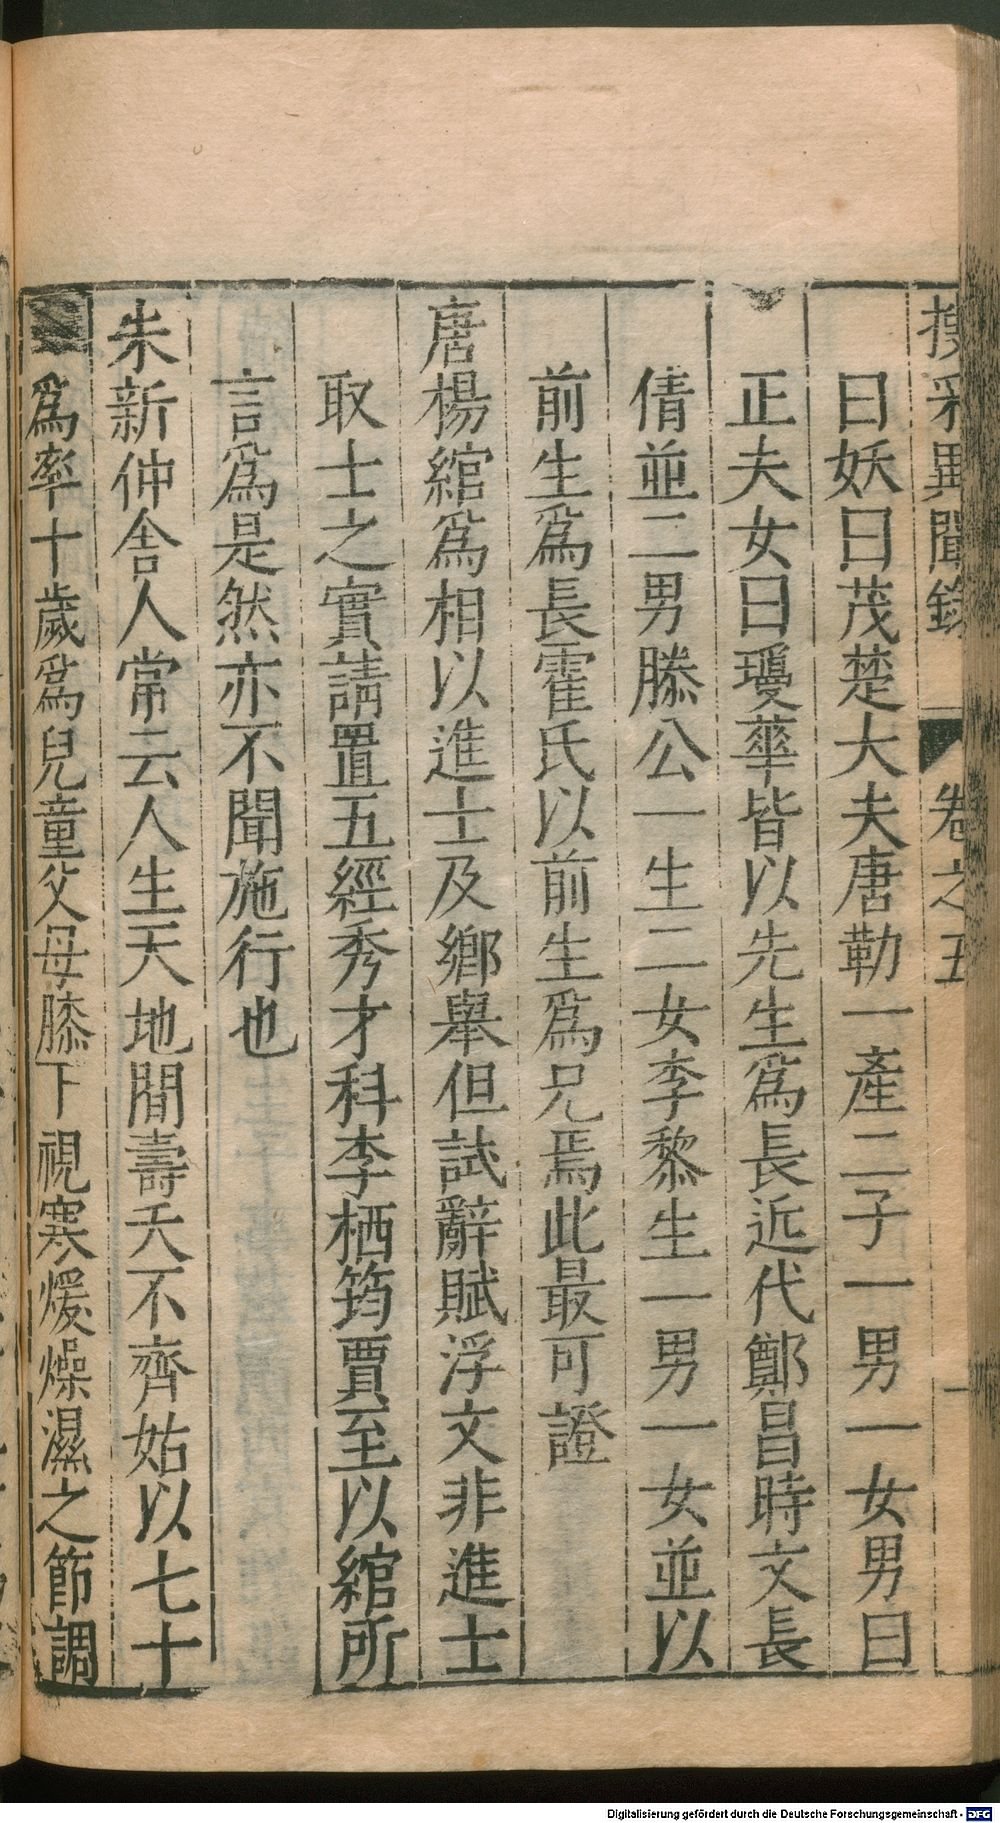 搜采異聞錄 卷之五 一
曰妖曰茂楚大夫唐勒一產二子一男一女男曰
正夫女曰瓊華皆以先生爲長近代鄭昌時文長
倩並二男滕公一生二女李黎生一男一女並以
前生爲長霍氏以前生爲兄焉此最可證
唐楊綰爲相以進士及鄉舉但試辭賦浮文非進士
取士之實請置五經秀才科李栖筠賈至以綰所
言爲是然亦不聞施行也
朱新仲舍人常云人生天地間壽夭不齊姑以七十
爲率十歲爲兒童父母膝下視寒煖燥濕之節調
Digitalisierung gefördert durch die Deutsche Forschungsgemeinschaft - DFG